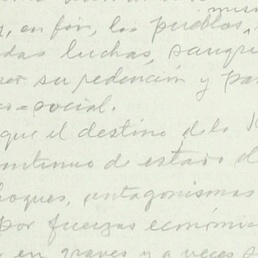 mism
, en fin, los pueblos,
das luchas, sangri
por su redención y pa
o-social.
que el destino de la H
ontinuo de estado d
hoques, antagonismos
por fuerzas económi
en graves y a veces s